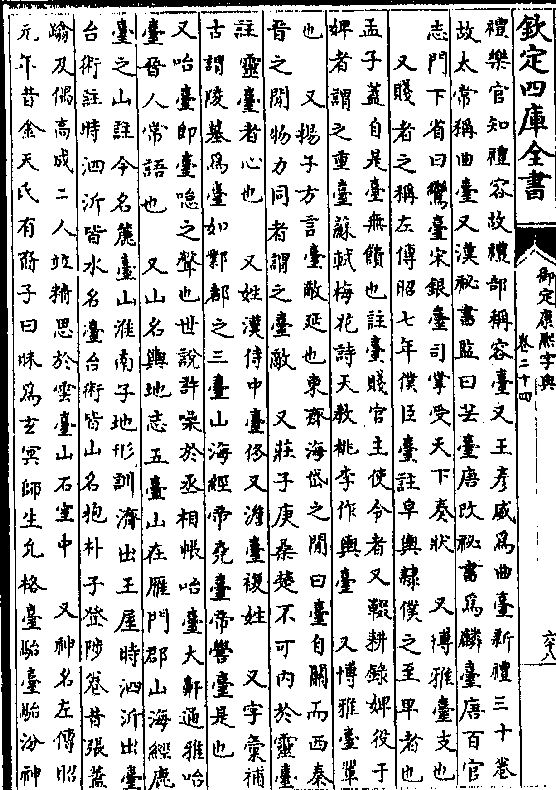 欽定四庫全書
御定康熙字典
卷二十四
六十八
禮樂官知禮容故禮部稱容臺又王彥威為曲臺新禮三十卷
故太常稱曲臺又漢祕書監曰芸臺唐改祕書為麟臺唐百官
志門下省曰鸞臺宋銀臺司掌受天下奏狀　又博雅臺支也
又賤者之稱左傳昭七年僕臣臺註皁輿隸僕之至卑者也
孟子蓋自是臺無餽也註臺賤官主使令者又輟耕錄婢役于
婢者謂之重臺蘇軾梅花詩天教桃李作輿臺　又博雅臺輩
也　又揚子方言臺敵延也東齊海岱之閒曰臺自關而西秦
晉之閒物力同者謂之臺敵　又莊子庚桑楚不可內於靈臺
註靈臺者心也　又姓漢侍中臺佟又澹臺複姓　又字彙補
古謂陵墓為臺如鄴都之三臺山海經帝堯臺帝嚳臺是也
又咍臺卽臺噫之聲也世說許璪於丞相帳咍臺大鼾通雅咍
臺晉人常語也　又山名輿地志五臺山在雁門郡山海經鹿
臺之山註今名麓臺山淮南子地形訓濟出王屋時泗沂出臺
台術註時泗沂皆水名臺台術皆山名抱朴子登陟卷昔張蓋
蹹及偶高成二人竝精思於雲臺山石室中　又神名左傳昭
元年昔金天氏有裔子曰昧為玄冥師生允格臺駘臺駘汾神